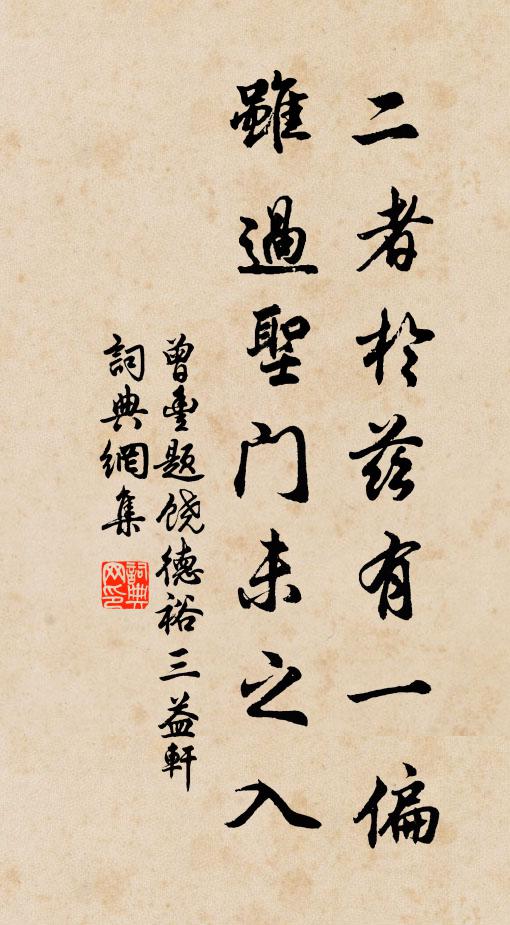 二者於茲有一偏
雖過聖門未之入
曾豊題饒德裕三益軒
詞典網集
詞典网印